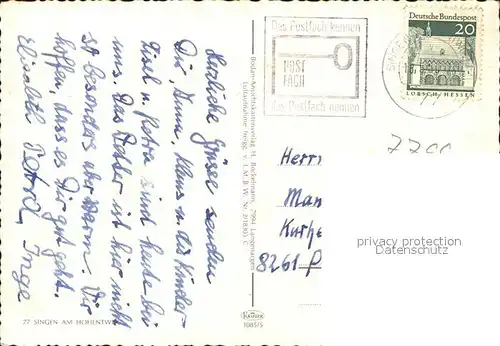 Herzliche Grüße senden
Dir, Anni, Klaus u. die Kinder.
und Petra sind heute bei
uns. Das Wetter ist hier nicht
so besonders aber warm. Wir
hoffen, dass es Dir gut geht.
Elisabeth, Petra, Inge
77 SINGEN AM HOHENTW
Bodan-Ansichtskartenverlag H. Bockelmann, 7994 Langenargen
Luftaufnahme freigeg. v. I. M. B. W. Nr.
KRÜGER
1085/5
Das Postfach kennen
POST
FACH
das Postfach nennen
SINGEN
Deutsche Bundespost
20
LORSCH·HESSEN
Herr
Man
Kurhe
8261 P
privacy protection
Datenschutz